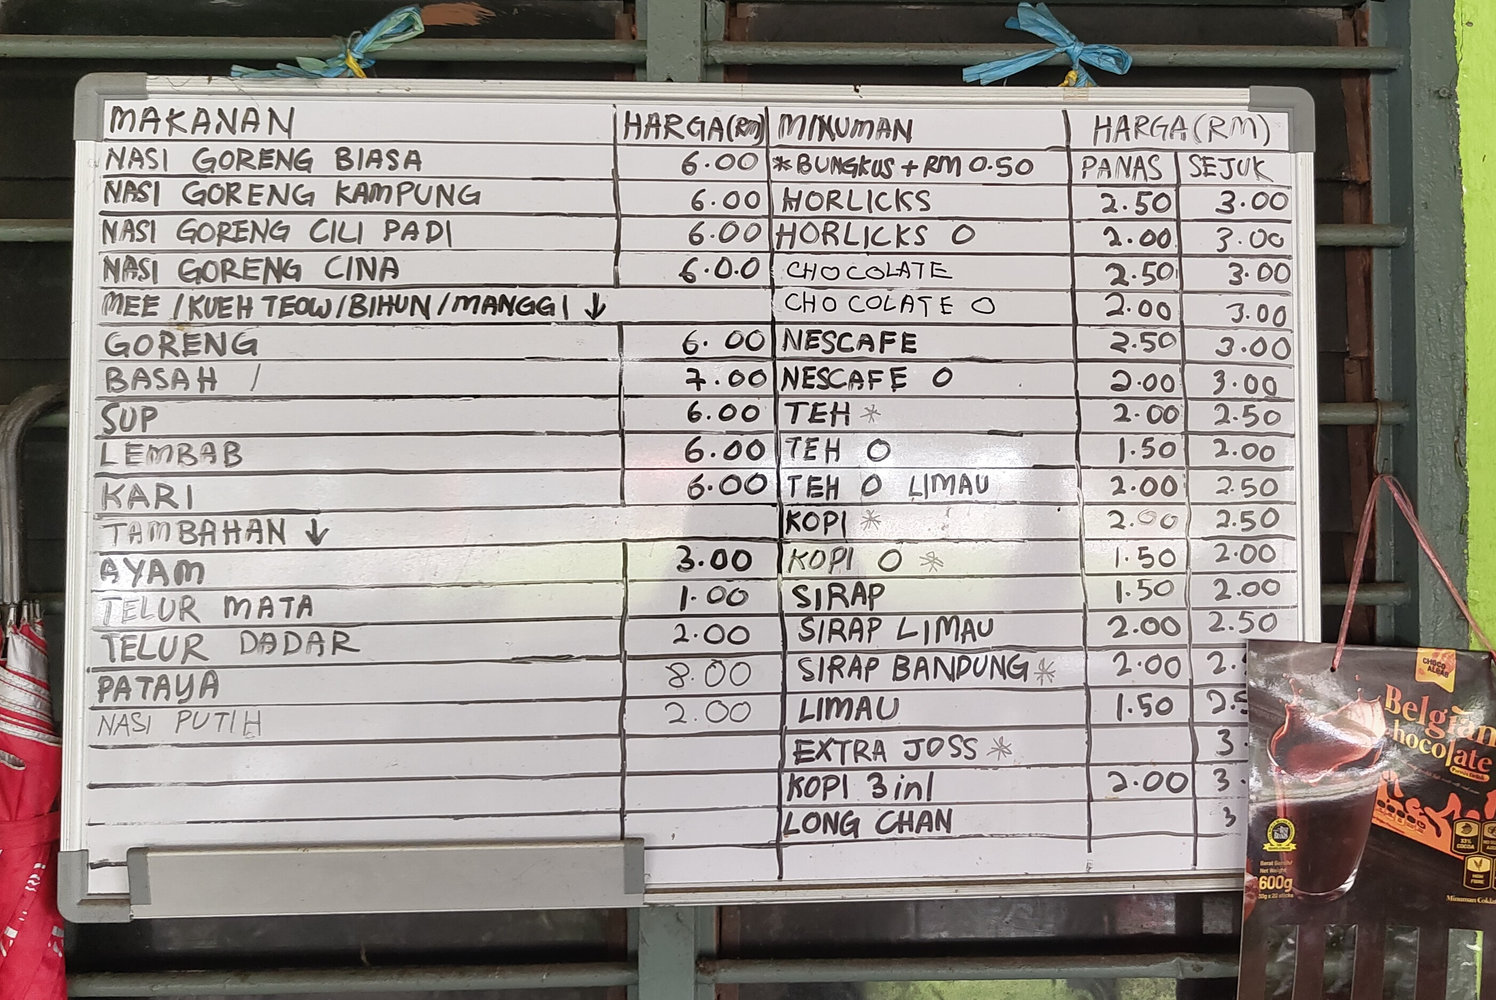 MAKANAN HARGA(RM) MINUMAN HARGA(RM)
NASI GORENG BIASA 6.00 *BUNGKUS + RM 0.50 PANAS SEJUK
NASI GORENG KAMPUNG 6.00 HORLICKS 2.50 3.00
NASI GORENG CILI PADI 6.00 HORLICKS O 2.00 3.00
NASI GORENG CINA 6.0.0 CHOCOLATE 2.50 3.00
MEE /KUEH TEOW/BIHUN/MANGGI ↓ CHOCOLATE O 2.00 3.00
GORENG 6.00 NESCAFE 2.50 3.00
BASAH / 7.00 NESCAFE O 2.00 3.00
SUP 6.00 TEH * 2.00 2.50
LEMBAB 6.00 TEH O 1.50 2.00
KARI 6.00 TEH O LIMAU 2.00 2.50
TAMBAHAN ↓ KOPI * 2.00 2.50
AYAM 3.00 KOPI O * 1.50 2.00
TELUR MATA 1.00 SIRAP 1.50 2.00
TELUR DADAR 2.00 SIRAP LIMAU 2.00 2.50
PATAYA 8.00 SIRAP BANDUNG * 2.00 2.
NASI PUTIH 2.00 LIMAU 1.50 2.5
EXTRA JOSS * 3.
KOPI 3in1 2.00 3.
LONG CHAN 3
CHOCO ALBAB
Belgian
Chocolate
Berat Bersih/
Net Weight
600g
Minuman